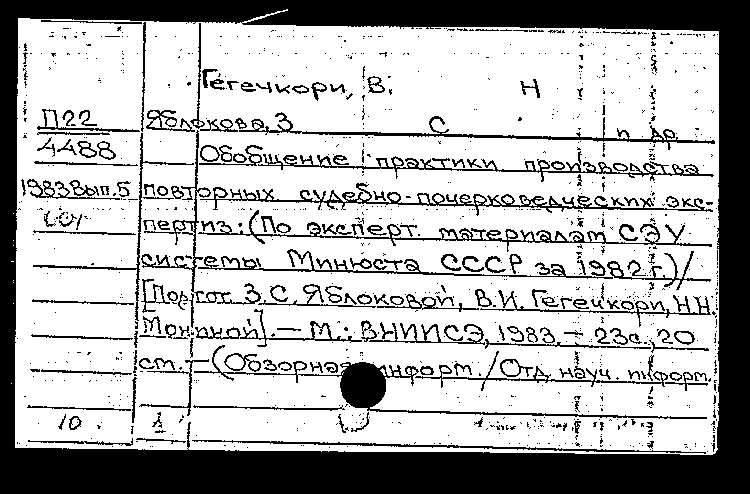 Гегечкори, В. Н
П22 Яблокова, З С и др
4488 Обобщение практики производства
1983 Вып. 5 повторных судебно-почерковедческих экс-
пертиз: (По эксперт. материалам СЭУ
системы Минюста СССР за 1982 г.) /
[Подгот. З.С. Яблоковой, В.И. Гегечкори, Н.Н.
]. — М.: ВНИИСЭ, 1983. — 23с., 20
см. — (Обзорная информ. / Отд. науч. информ.
10 1